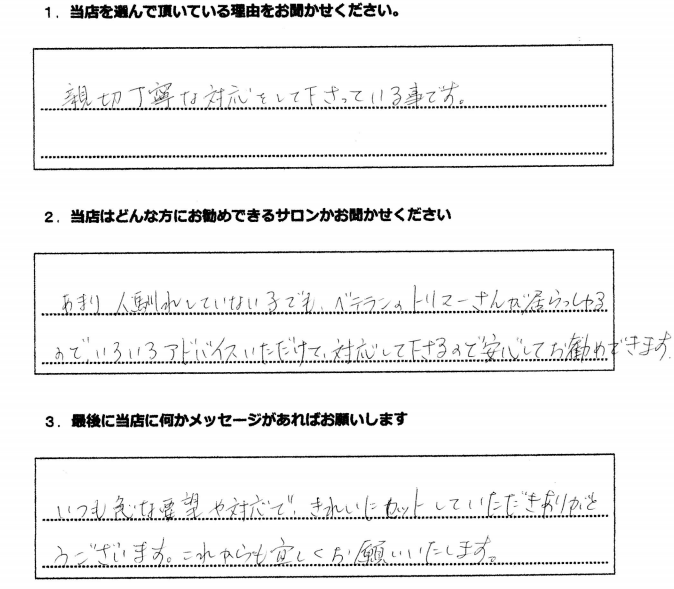 1．当店を選んで頂いている理由をお聞かせください。
親切丁寧な対応をして下さっている事です。
2．当店はどんな方にお勧めできるサロンかお聞かせください
あまり人馴れしていない子でも、ベテランのトリマーさんが居らっしゃる
ので、いろいろアドバイスいただけて、対応して下さるので安心してお勧めできます。
3．最後に当店に何かメッセージがあればお願いします
いつも急な要望や対応で、きれいにカットしていただきありがと
うございます。これからも宜しくお願いいたします。